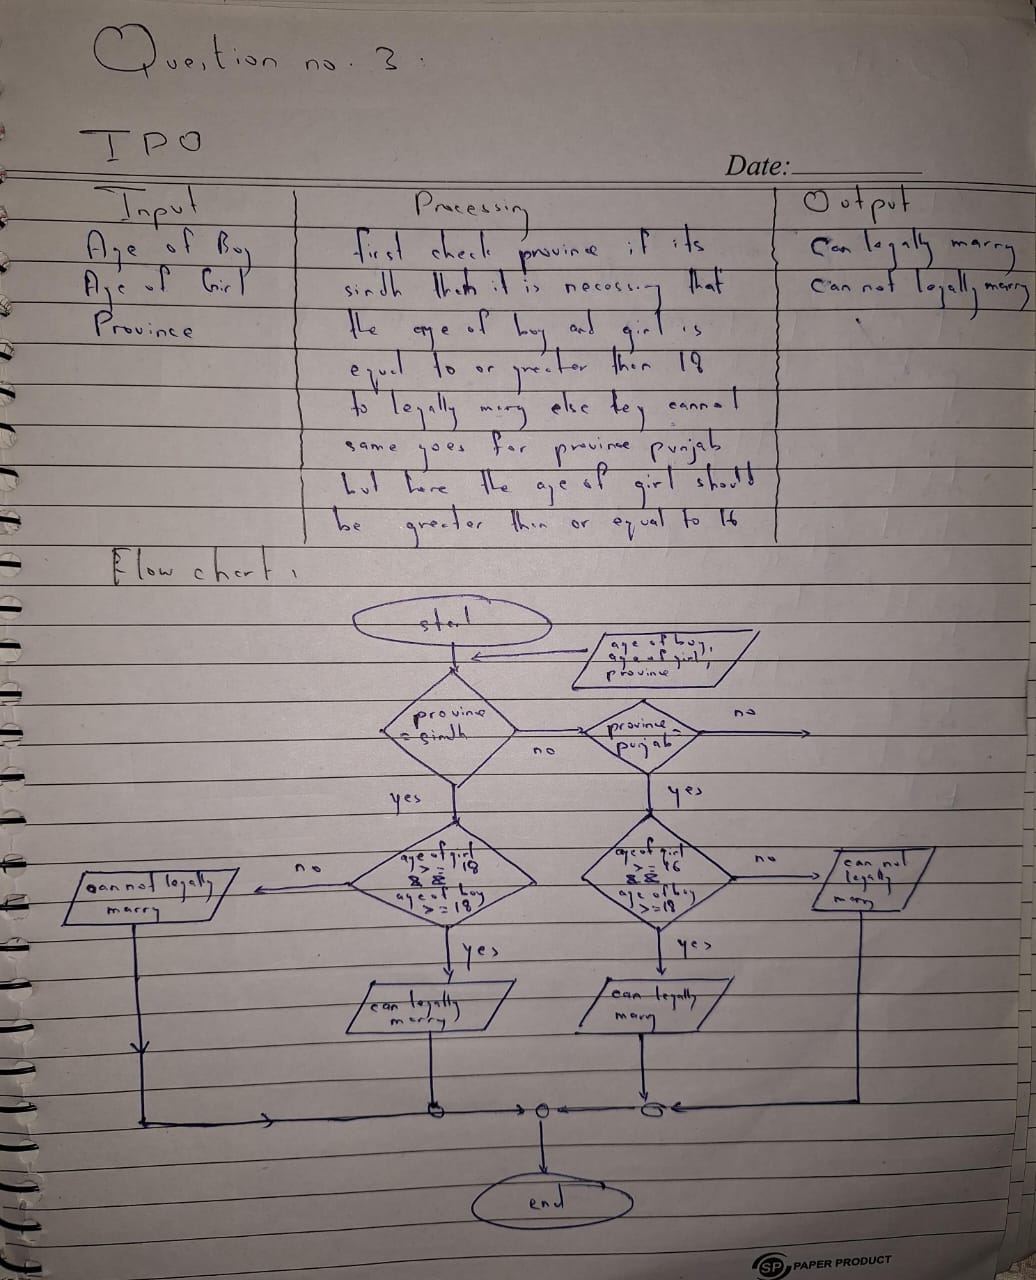 Question no. 3.
IPO
Date:
Input
Processing
Output
Age of Boy
Age of Girl
Province
first check province if its
sindh then it is necessary that
the age of boy and girl is
equal to or greater than 18
to legally marry else tey cannot
same goes for province punjab
but here the age of girl should
be greater than or equal to 16
Can legally marry
Can not legally marry
Flow chart.
start
age of boy,
age of girl,
province
province
= sindh
no
province =
punjab
no
yes
yes
age of girl
>= 18
&&
age of boy
>= 18
no
can not legally
marry
age of girl
>= 16
&&
age of boy
>=18
no
can not
legally
marry
yes
yes
can legally
marry
can legally
marry
end
SP PAPER PRODUCT